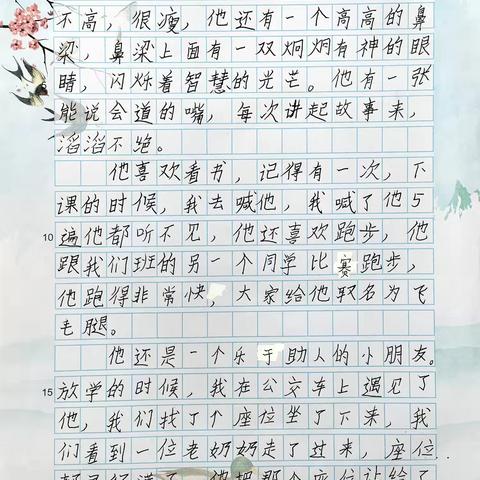 不高，很瘦，他还有一个高高的鼻
梁，鼻梁上面有一双炯炯有神的眼
睛，闪烁着智慧的光芒。他有一张
能说会道的嘴，每次讲起故事来，
滔滔不绝。
他喜欢看书，记得有一次，下
课的时候，我去喊他，我喊了他5
10 遍他都听不见，他还喜欢跑步，他
跟我们班的另一个同学比赛跑步，
他跑得非常快，大家给他取名为飞
毛腿。
他还是一个乐于助人的小朋友。
15 放学的时候，我在公交车上遇见了
他，我们找了个座位坐了下来，我
们看到一位老奶奶走了过来，座位
他把那个座位让给了